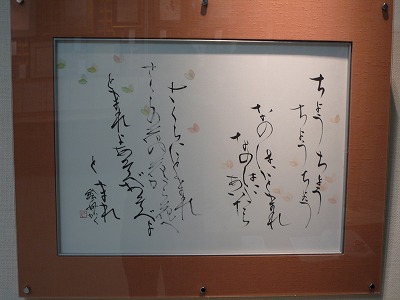 ちようちよう
ちようちよう
なのはにとまれ
なのはにあいたら
さくらにとまれ
さくらの花の花から花へ
とまれよあそべあそべよ
とまれ